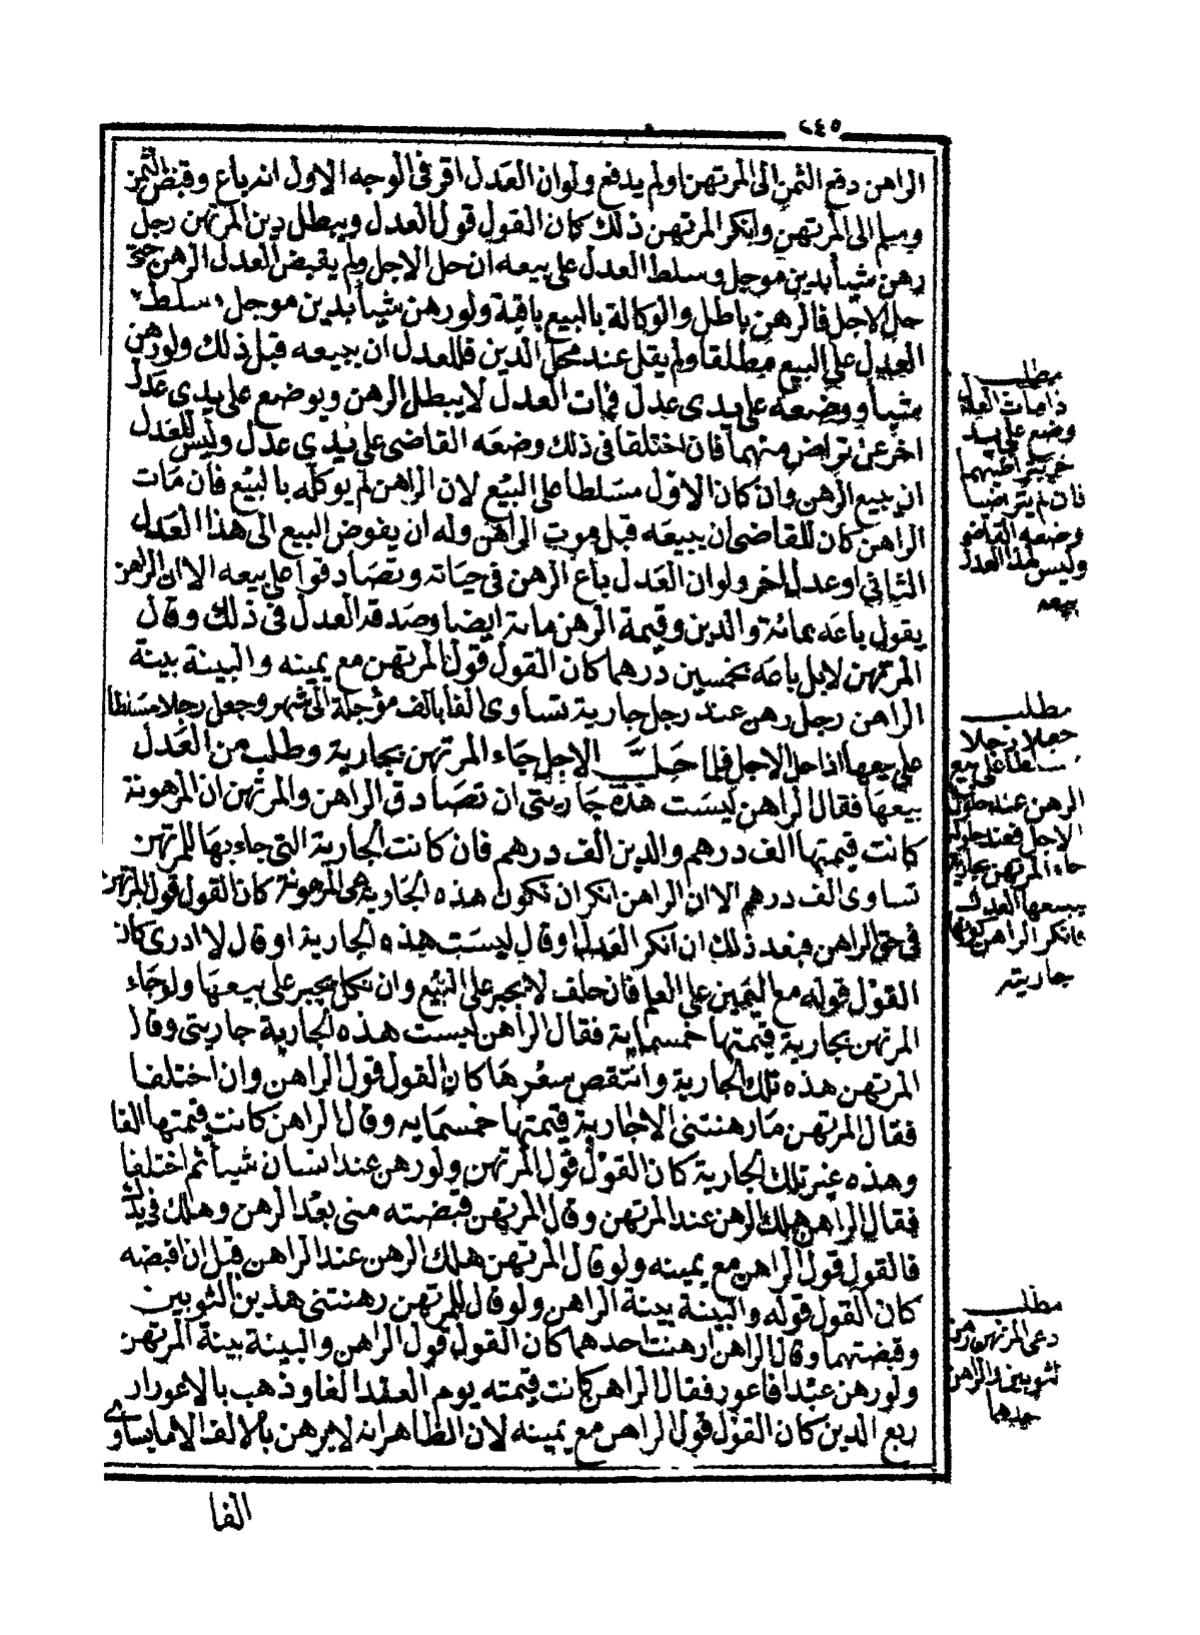 ٢٤٥
الراهن دفع الثمن الى المرتهن او لم يدفع ولو ان العدل اقر فى الوجه الاول انه باع وقبض الثمن
وسلم الى المرتهن وانكر المرتهن ذلك كان القول قول العدل ويبطل دين المرتهن رجل
رهن شيأ بدين موجل وسلط العدل على بيعه ان حل الاجل ولم يقبض العدل الرهن حتى
حل الاجل فالرهن باطل والوكالة بالبيع باقية ولو رهن شيأ بدين موجل وسلط
العدل على البيع مطلقا ولم يقل عند محل الدين فللعدل ان يبيعه قبل ذلك ولو رهن
شيأ ووضعه على يدى عدل فمات العدل لا يبطل الرهن ويوضع على يدى عدل
اخر عن تراض منهما فان اختلفا فى ذلك وضعه القاضى على يدي عدل وليس للعدل
ان يبيع الرهن وان كان الاول مسلطا على البيع لان الراهن لم يوكله بالبيع فان مات
الراهن كان للقاضى ان يبيعه قبل موت الراهن وله ان يفوض البيع الى هذا العدل
الثانى او عدل اخر ولو ان العدل باع الرهن فى حياته وتصادقوا على بيعه الا ان الراهن
يقول باعه بمائة والدين وقيمة الرهن مائة ايضا وصدقه العدل فى ذلك وقال
المرتهن لا بل باعه بخمسين درهما كان القول قول المرتهن مع يمينه والبينة بينة
الراهن رجل رهن عند رجل جارية تساوى الفا بالف مؤجلة الى شهر وجعل رجلا مسلطا
على بيعها اذا حل الاجل فلما حل الاجل جاء المرتهن بجارية وطلب من العدل
بيعها فقال الراهن ليست هذه جاريتى ان تصادق الراهن والمرتهن ان المرهونة
كانت قيمتها الف درهم والدين الف درهم فان كانت الجارية التى جاء بها المرتهن
تساوى الف درهم الا ان الراهن انكر ان تكون هذه الجارية هى المرهونة كان القول قول المرتهن
فى حق الراهن فبعد ذلك ان انكر العدل او قال ليست هذه الجارية او قال لا ادرى كان
القول قوله مع اليمين على العلم فان حلف لا يجبر على البيع وان نكل يجبر على بيعها ولو جاء
المرتهن بجارية قيمتها خمسماية فقال الراهن ليست هذه الجارية جاريتى وقال
المرتهن هذه تلك الجارية وانتقص سعرها كان القول قول الراهن وان اختلفا
فقال المرتهن ما رهنتنى الا جارية قيمتها خمسمايه وقال الراهن كانت قيمتها الفا
وهذه غير تلك الجارية كان القول قول المرتهن ولو رهن عند انسان شيأ ثم اختلفا
فقال الراهن هلك الرهن عند المرتهن وقال المرتهن قبضته منى بعد الرهن وهلك فى يدك
فالقول قول الراهن مع يمينه ولو قال المرتهن هلك الرهن عند الراهن قبل ان اقبضه
كان القول قوله والبينة بينة الراهن ولو قال للمرتهن رهنتنى هذين الثوبين
وقبضتهما وقال الراهن ارهنت احدهما كان القول قول الراهن والبينة بينة المرتهن
ولو رهن عبدا فاعور فقال الراهن كانت قيمته يوم العقد الفا وذهب بالاعورار
ربع الدين كان القول قول الراهن مع يمينه لان الظاهر انه لا يرهن بالالف الا ما يساوى
الفا
مطلب
اذا مات العدل
وضع على يد
اخر بتراضيهما
فان لم يتراضيا
وضعه القاضى
وليس لهذا العدل
بيعه
مطلب
جعلا رجلا
مسلطا على بيع
الرهن عند حلول
الاجل فعند حلوله
جاء المرتهن بجارية
يبيعها العدل
فانكر الراهن كونها
جاريته
مطلب
ادعى المرتهن رهن
الثوبين والراهن
احدهما